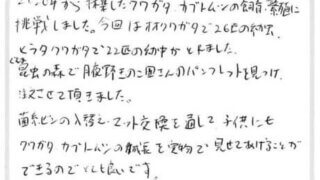 から 採集したクワガタ カブトムシの飼育、繁殖に
挑戦しました。今回はオオクワガタで26匹の幼虫、
ヒラタクワガタで22匹の幼虫がとれました。
昆虫の森で月夜野きのこ園さんのパンフレットを見つけ
注文させて頂きました。
菌糸ビンの入替え・マット交換を通して 子供にも
クワガタ カブトムシの成長を実物で見せてあげることが
できるのでとても良いです。